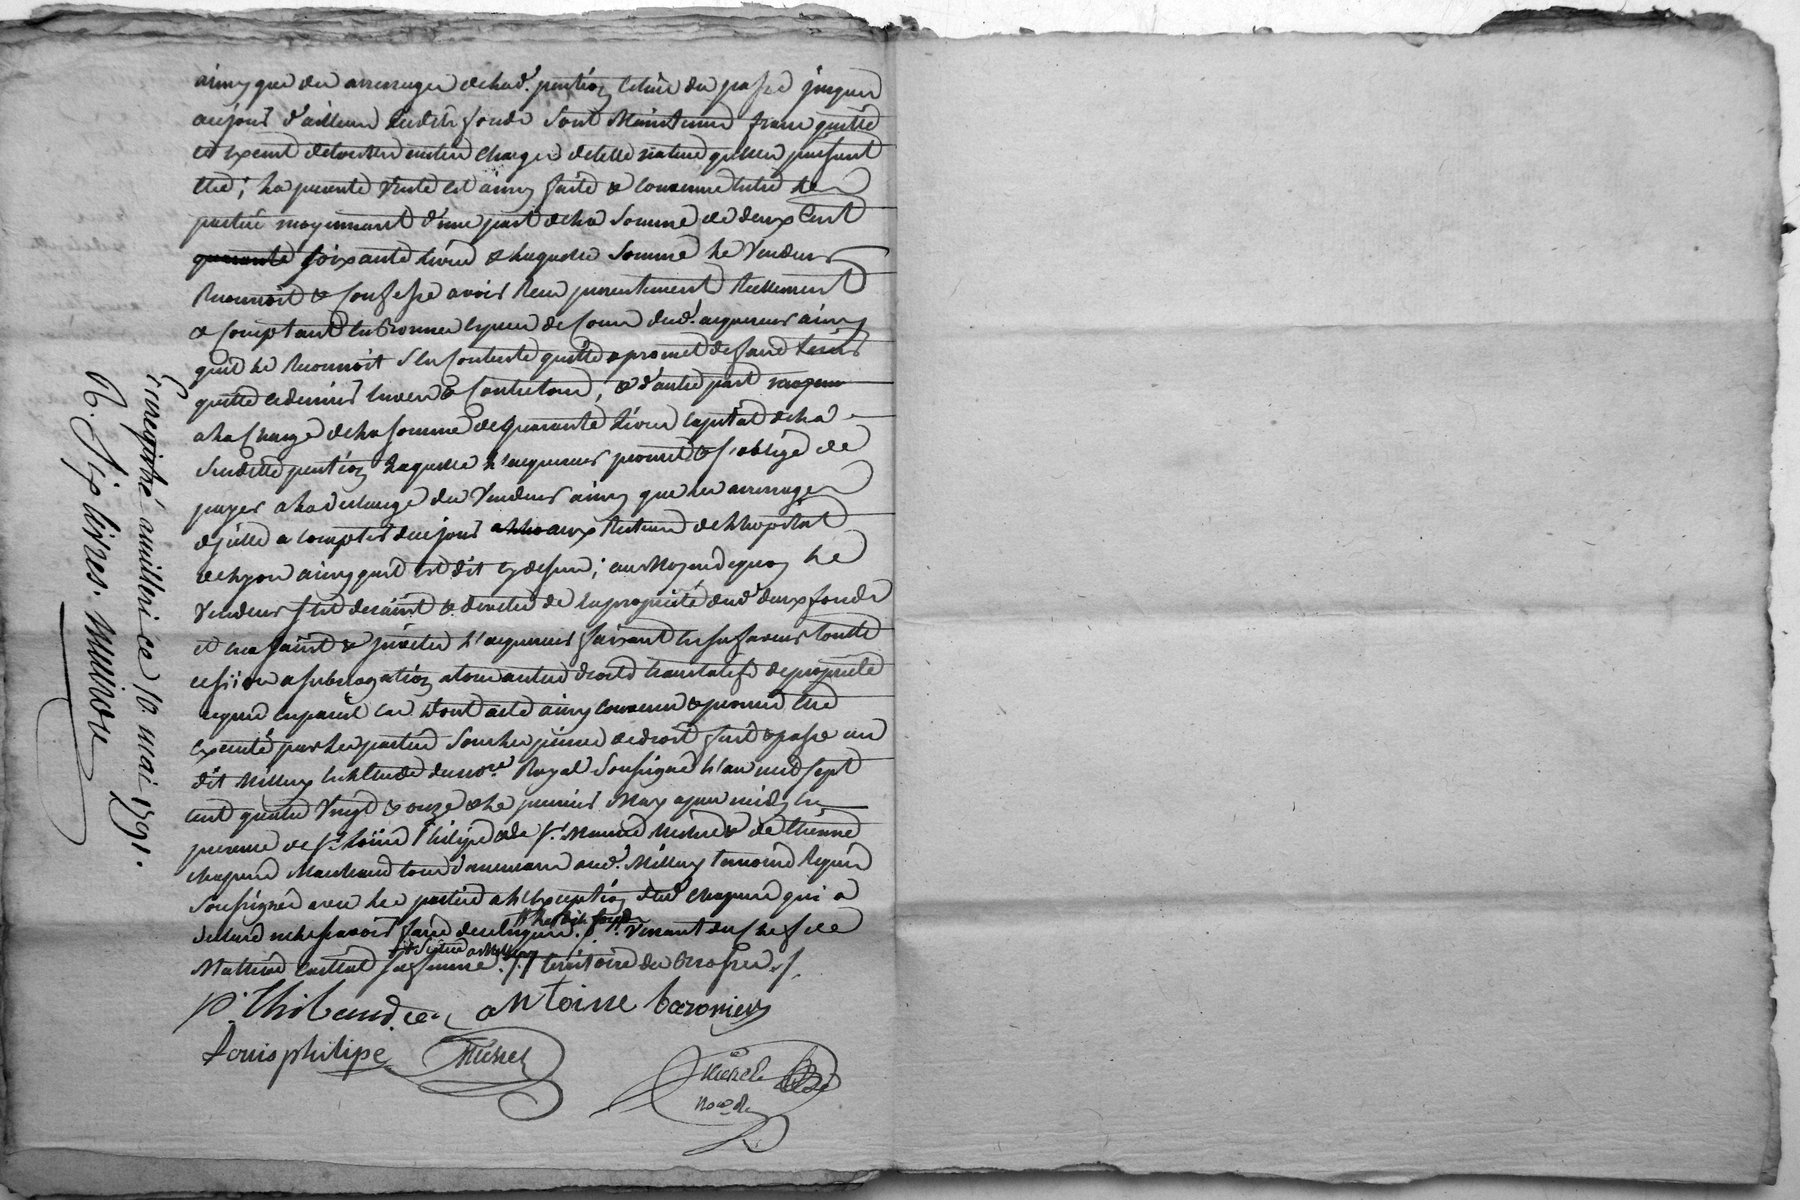 ainsy que des arrerages de lad.e pention du passé jusques
aujour d'ailleurs lesdits fonds sont maintenus francs quitte
et exemt de touttes autres charges de telle nature quelles puissent
etre; La presente vente est ainsy faite & convenue entre les
parties moyennant d'une part de la somme de deux cent
quarante soixante livres & laquelle somme le vendeur
Reconnoit & confesse avoir Recu presentement Reellement
& comptant en bonnes especes de cours dud. acquereur ainsy
quil le Reconnoit s'en contente quitte & promet de faire tenir
quitte ce dernier envers & contre tous; & d'autre part moyen
a la charge de la somme de quarante livres capital de la
susditte pention laquelle l'acquereur promet & s'oblige de
payer a la decharge du vendeur ainsy que les arrerages
d'jcelle a compter de ce jour a aux Recteurs de l'hopital
de Lyon ainsy quil est dit cy dessus; au Moyen de quoy le
vendeur s'est desaisit & devetu de la proprieté dud. deux fonds
et en a saisit & jnvetu l'acquereur faisant en sa faveur toutte
cession & subrogation & tous autres droits translatifs de proprieté
requis en pareil cas dont acte ainsy convenu & promis etre
executé par les parties sous les peines de droit fait & passé au
dit Millery en l'étude du no.re Royal soussigné l'an mil sept
cent quatre vingt & onze & le premier May apres midy en
presence de s.r Loüis Philipe & de s.r Maurice Michel & de Etienne
chapuis Marchand tous demeurans aud. Millery temoins Requis
soussignés avec les parties a l'exception dud. chapuis qui a
declaré ne le savoir faire de ce Enquis. # lesdits fonds venant du chef de
Mathieu sa femme. # et Scitué a Millery territoire des
P. Thibaudier antoine baronier
Louis philipe Michel
Michel
No.re R.
Enregistré a millerie ce 10. mai 1791.
R. Six livres.